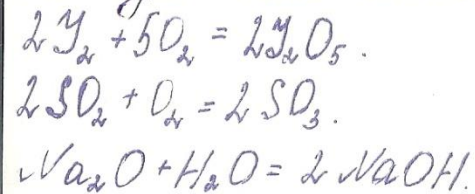 2J₂ + 5O₂ = 2J₂O₅.
2SO₂ + O₂ = 2SO₃.
Na₂O + H₂O = 2NaOH.